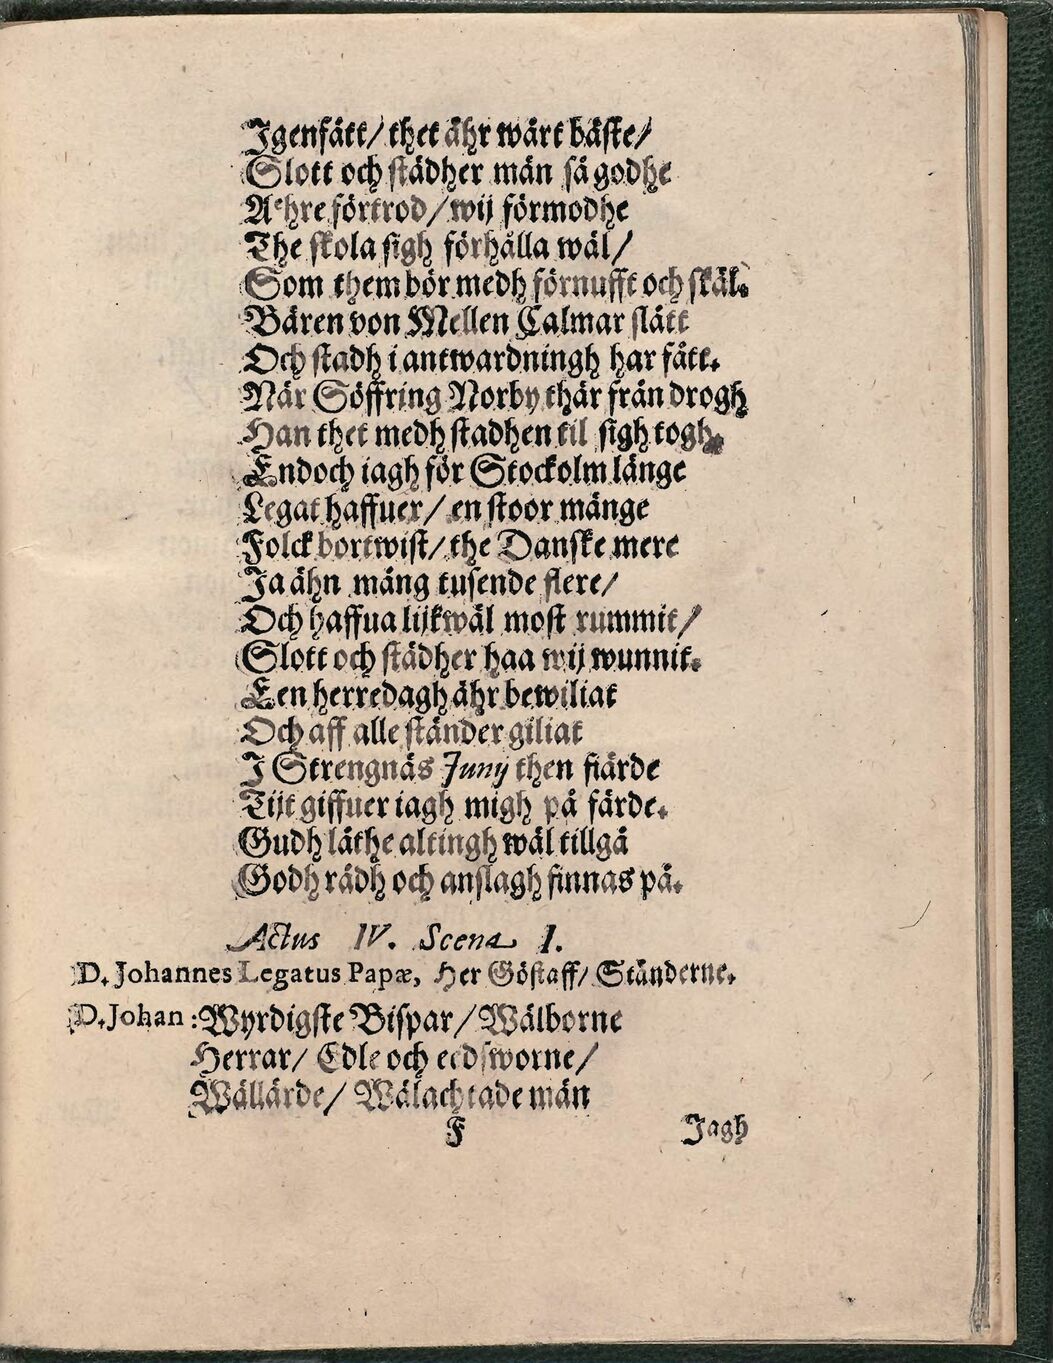 Igenfått/ thet ähr wårt bäste/
Slott och städher män så godhe
Aͤhre förtrod/ wij förmodhe
The skola sigh förhålla wäl/
Som them bör medh förnufft och skäl.
Bären von Mellen Calmar slått
Och stadh i antwardningh har fått.
När Söffring Norby thär från drogh
Han thet medh stadhen til sigh togh.
Endoch iagh för Stockolm länge
Legat haffuer/ en stoor mänge
Folck bortwist/ the Danske mere
Ja ähn mång tusende flere/
Och haffua lijkwäl most rummit/
Slott och städher haa wij wunnit.
Een herredagh ähr bewiliat
Och aff alle ständer giliat
I Strengnäs Junij then fiärde
Tijt giffuer iagh migh på färde.
Gudh låthe altingh wäl tillgå
Godh rådh och anslagh finnas på.
Actus IV. Scena I.
D. Johannes Legatus Papæ, Her Göstaff/ Ständerne.
D. Johan: Wyrdigste Bispar/ Wälborne
Herrar/ Edle och eedsworne/
Wällärde/ Wälachtade män
F Jagh